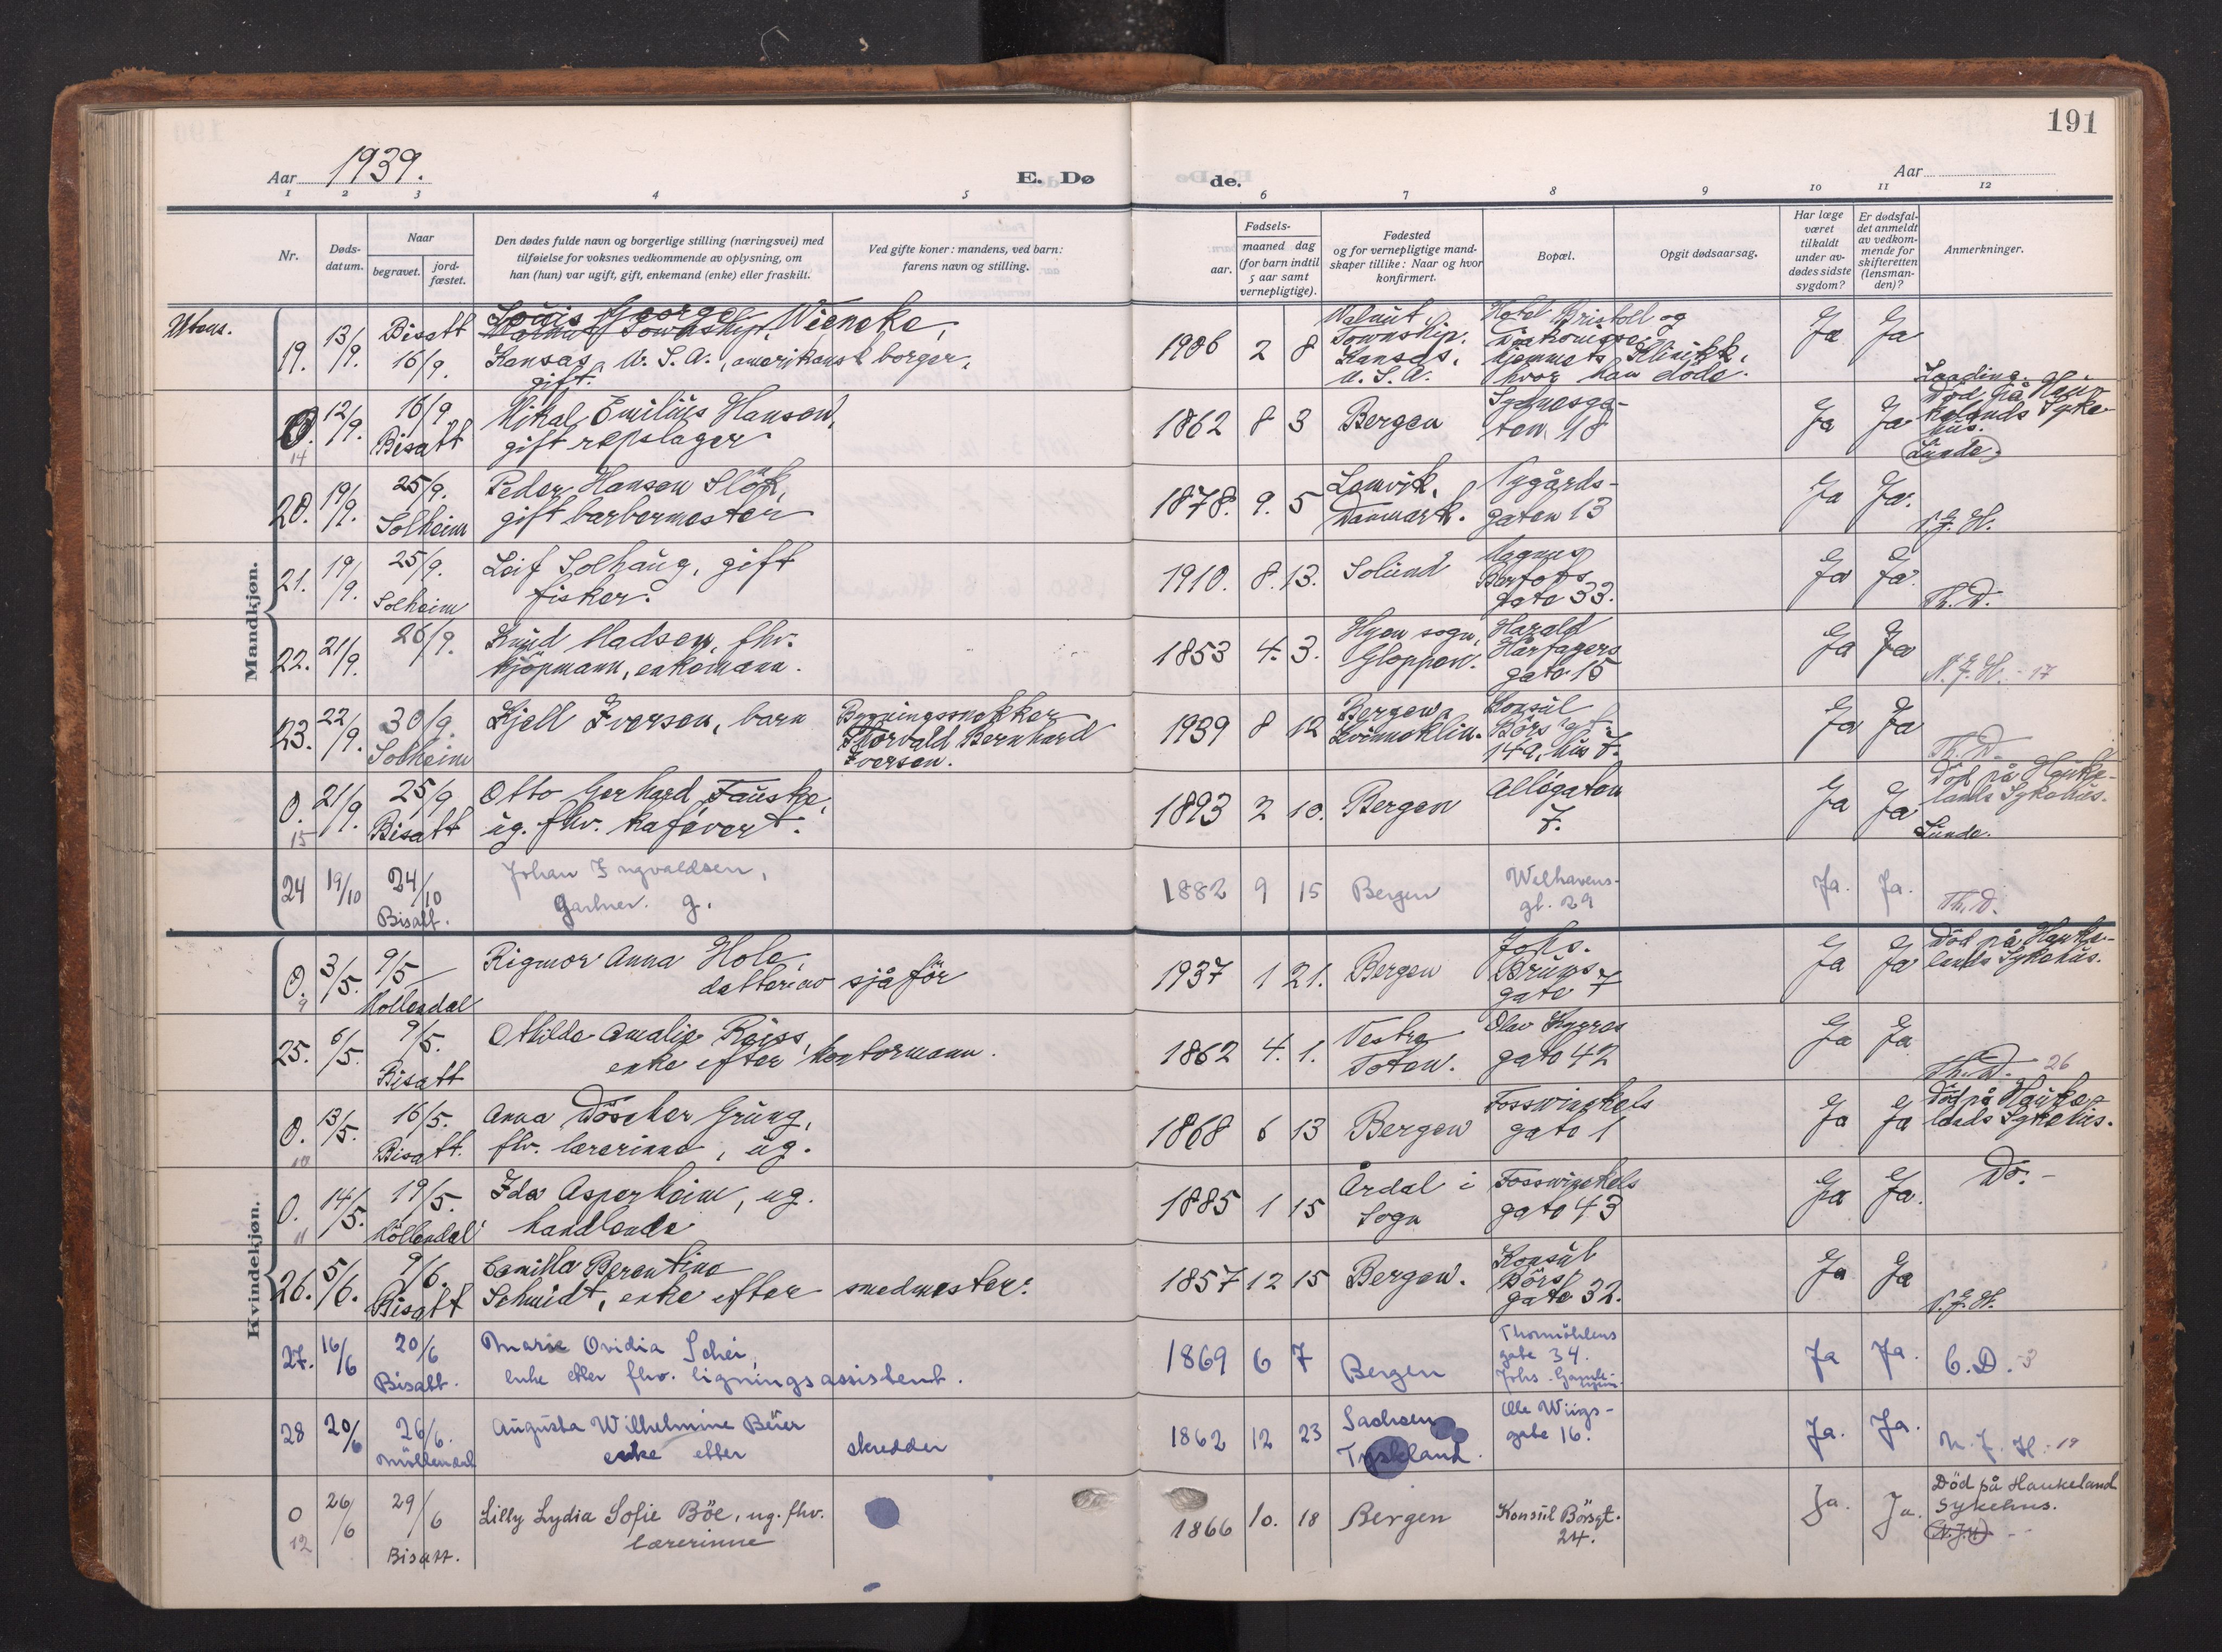 191
Aar 1939.
E. Dø
de.
Aar
1 2 3 4 5 6 7 8 9 10 11 12
Nr.
Døds-
datum.
Naar
begravet.
jord-
fæstet.
Den dødes fulde navn og borgerlige stilling (næringsvei) med
tilføielse for voksnes vedkommende av oplysning, om
han (hun) var ugift, gift, enkemand (enke) eller fraskilt.
Ved gifte koner: mandens, ved barn:
farens navn og stilling.
Fødsels-
aar.
maaned dag
(for barn indtil
5 aar samt
vernepligtige).
Fødested
og for vernepligtige mand-
skaper tillike: Naar og hvor
konfirmert.
Bopæl.
Opgit dødsaarsag.
Har læge
været
tilkaldt
under av-
dødes sidste
sygdom?
Er dødsfal-
det anmeldt
av vedkom-
mende for
skifteretten
(lensman-
den)?
Anmerkninger.
Mandkjøn.
Utens.
19. 13/9. Bisatt 16/9.
Louis George Wieneke,
Kansas, U. S. A., amerikansk borger,
gift.
1906 2 8
Walnut
Township.
Kansas.
U. S. A.
Hotel Bristoll og
Diakonisse-
hjemmets Klinikk,
hvor han döde.
Ja Ja
0. 14 12/9. 16/9 Bisatt
Mikal Emilius Hansen,
gift repslager
1862 8 3 Bergen
Sydnesga-
ten 18
Ja Ja
Död på Hau-
kelands Syke-
hus.
Lunde.
20. 19/9. 25/9. Solheim
Peder Hansen Slök,
gift barbermester
1878. 9. 5
Lemvik,
Danmark.
Nygårds-
gaten 13
Ja Ja.
N. J. H.
21. 19/9. 25/9. Solheim
Leif Solhaug, gift
fisker.
1910. 8. 13. Solund
Magnus
Barfots
gate 33.
Ja Ja.
Th. D.
22. 21/9. 26/9.
Knud Madsen, fhv.
kjöpmann, enkemann.
1853 4. 3.
Hyen sogn,
Gloppen.
Harald
Hårfagers
gate 15
Ja Ja
N. J. H. - 17
23. 22/9. 30/9. Solheim
Kjell Iversen, barn
Bygningssnekker
Thorvald Bernhard
Iversen.
1939 8 12
Bergen,
Kvinneklin.
Konsul
Börs gt.
149, hus 7.
Ja Ja
Th. D.
0. 15 21/9. 25/9 Bisatt
Otto Gerhard Fauske,
ug. fhv. kafévert.
1893 2 10. Bergen
Allégaten
7.
Ja Ja
Död på Hauke-
lands Sykehus.
Lunde.
24 19/10 24/10 Bisatt.
Johan Ingvaldsen,
Gartner. g.
1882 9 15 Bergen
Welhavens-
gt. 29
Ja. Ja.
Th. D.
Kvindekjøn.
0. 9 3/5. 9/5 Möllendal
Rigmor Anna Hole,
datter av sjåför
1937 1 21. Bergen
Johs.
Bruns
gate 7
Ja Ja
Död på Hauke-
lands Sykehus.
25. 6/5. 9/5. Bisatt
Othilde Amalie Reiss,
enke efter kontormann.
1862 4. 1.
Vestre
Toten.
Olav Kyrres
gate 42
Ja Ja
Th. D. 26
0. 10 13/5. 16/5. Bisatt.
Anna Döscher Grung,
fhv. lærerinne, ug.
1868 6 13 Bergen
Fosswinckels
gate 1
Ja Ja
Död på Hauke-
lands Sykehus.
0. 11 14/5. 19/5. Möllendal
Ida Asperheim, ug.
handlende
1885 1 15
Årdal i
Sogn
Fosswinckels
gate 43
Ja Ja.
Do. -
26. 5/6. 9/6. Bisatt
Camilla Berentine
Schmidt, enke efter smedmester.
1857 12 15 Bergen.
Konsul
Börs
gate 32.
Ja Ja
N. J. H.
27. 16/6 20/6 Bisatt.
Marie Ovidia Schei,
enke etter fhv. ligningsassistent.
1869 6 7 Bergen
Thormöhlens
gate 34.
Johs. Gamle-
hjem.
Ja Ja.
C. D. -3
28 20/6 26/6. Möllendal
Augusta Wilhelmine Beier
enke etter skredder
1862 12 23
Sachsen
Tyskland.
Olle Wiigs-
gate 16.
Ja. Ja.
N. J. H. 19
0 12 26/6 29/6 Bisatt.
Lilly Lydia Sofie Böe, ug. fhv.
lærerinne
1866 10. 18 Bergen
Konsul Börsgt.
24.
Ja. Ja.
Död på Haukeland
Sykehus.
(N.J.H)